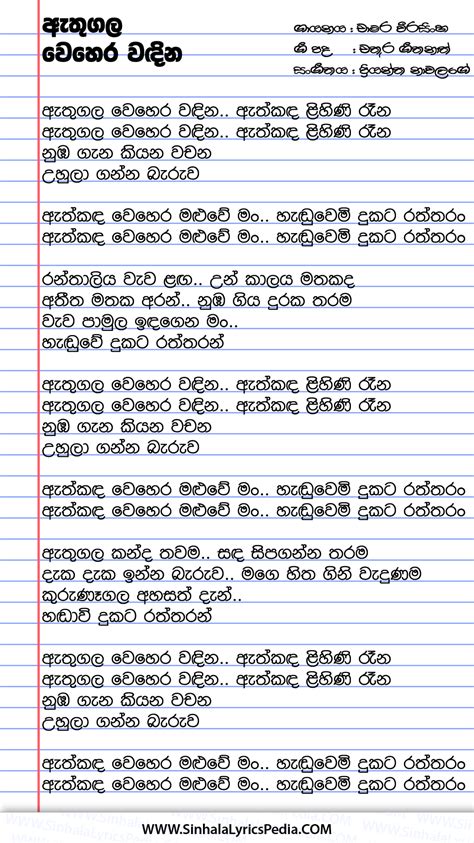 ඇතුගල
වෙහෙර වඳින
ගායනය : චාමර වීරසිංහ
ගී පද : චතුර ගීතනාත්
සංගීතය : ප්‍රියන්ත නාවලගේ
ඇතුගල වෙහෙර වඳින.. ඇත්කඳ ළිහිණි රෑන
ඇතුගල වෙහෙර වඳින.. ඇත්කඳ ළිහිණි රෑන
නුඹ ගැන කියන වචන
උහුලා ගන්න බැරුව
ඇත්කඳ වෙහෙර මළුවේ මං.. හැඬුවෙමි දුකට රත්තරං
ඇත්කඳ වෙහෙර මළුවේ මං.. හැඬුවෙමි දුකට රත්තරං
රන්තාලිය වැව ළඟ.. උන් කාලය මතකද
අතීත මතක අරන්.. නුඹ ගිය දුරක තරම
වැව පාමුල ඉඳගෙන මං..
හැඬුවේ දුකට රත්තරන්
ඇතුගල වෙහෙර වඳින.. ඇත්කඳ ළිහිණි රෑන
ඇතුගල වෙහෙර වඳින.. ඇත්කඳ ළිහිණි රෑන
නුඹ ගැන කියන වචන
උහුලා ගන්න බැරුව
ඇත්කඳ වෙහෙර මළුවේ මං.. හැඬුවෙමි දුකට රත්තරං
ඇත්කඳ වෙහෙර මළුවේ මං.. හැඬුවෙමි දුකට රත්තරං
ඇතුගල කන්ද තවම.. සඳ සිපගන්න තරම
දැක දැක ඉන්න බැරුව.. මගෙ හිත ගිනි වැදුණම
කුරුණෑගල අහසත් දැන්..
හඬාවි දුකට රත්තරන්
ඇතුගල වෙහෙර වඳින.. ඇත්කඳ ළිහිණි රෑන
ඇතුගල වෙහෙර වඳින.. ඇත්කඳ ළිහිණි රෑන
නුඹ ගැන කියන වචන
උහුලා ගන්න බැරුව
ඇත්කඳ වෙහෙර මළුවේ මං.. හැඬුවෙමි දුකට රත්තරං
ඇත්කඳ වෙහෙර මළුවේ මං.. හැඬුවෙමි දුකට රත්තරං
www.SinhalaLyricsPedia.COM